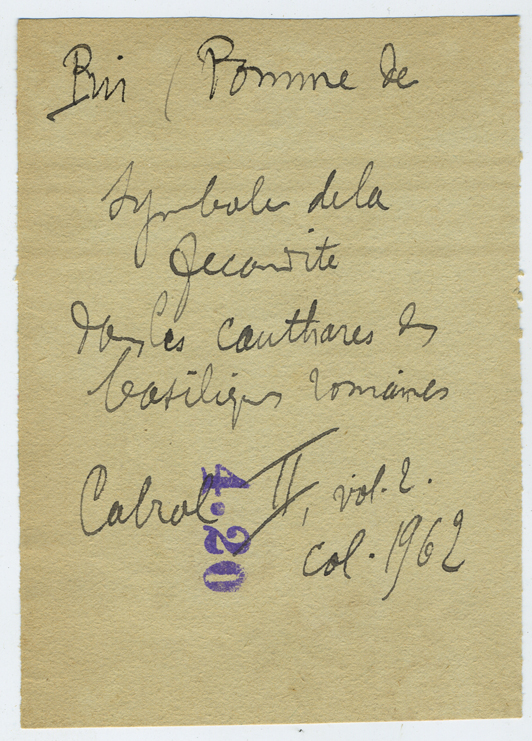 Pin (Pomme de
Symbole de la
fecondite
dans les canthares des
basiliques romaines
Cabrol II, vol. 2.
col. 1962
4.20